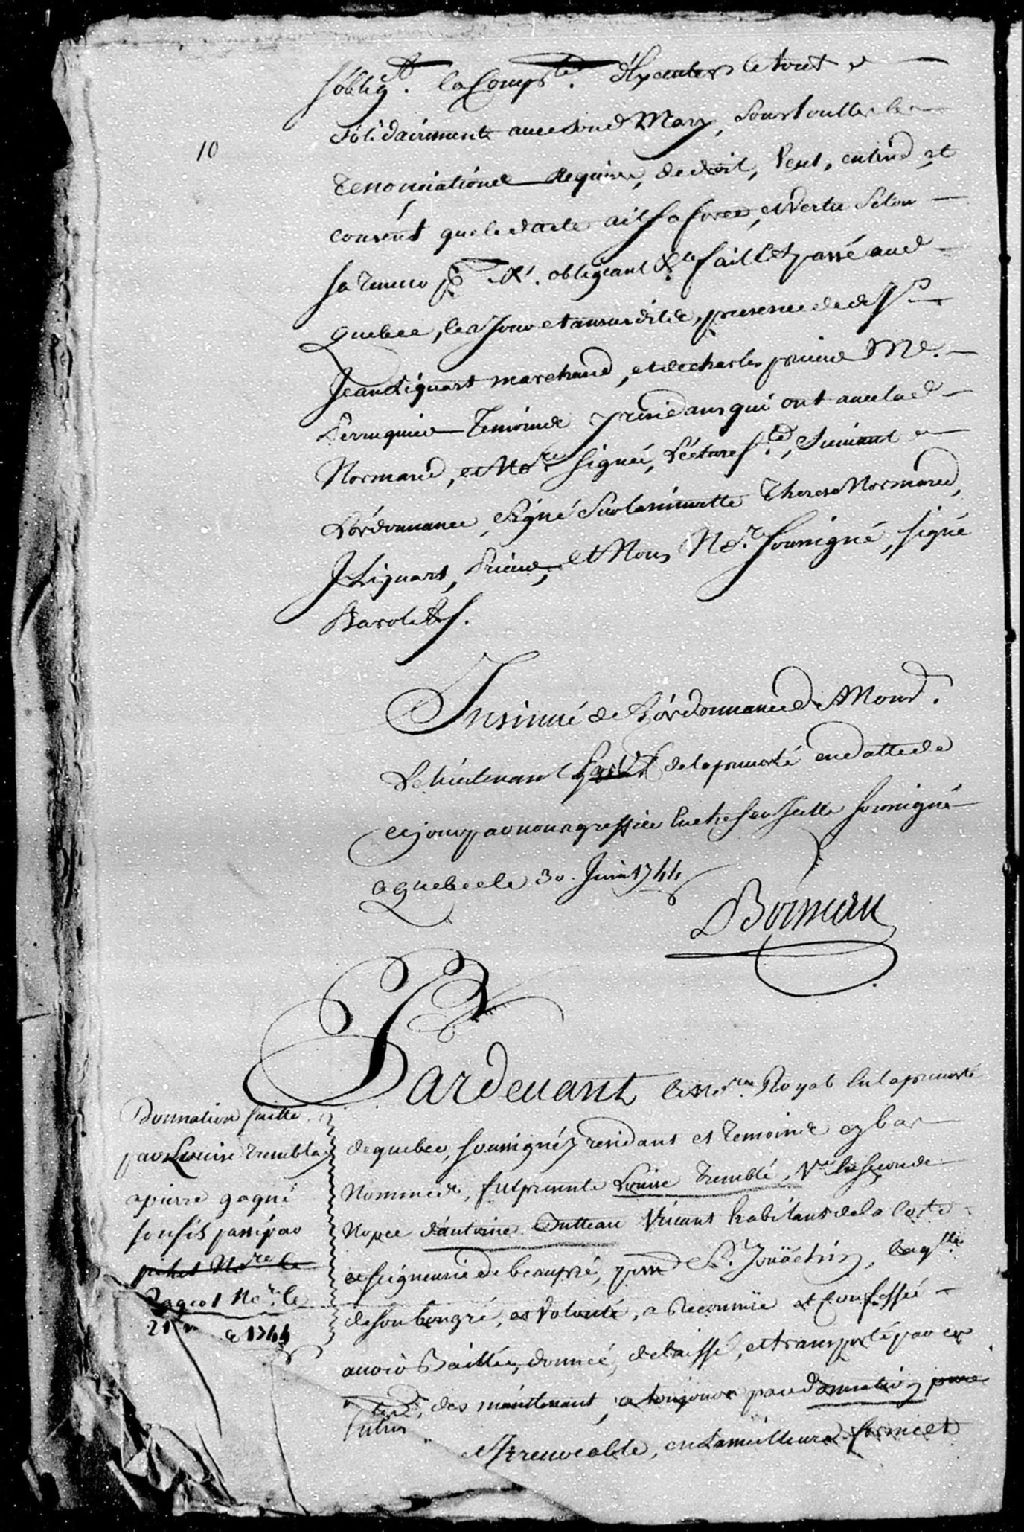 s'oblige la Comp.te d'Executer le tout
solidairement avec son d Mary, sous toutte les
renonciations requises, de droit, Veut, entend, et
consent que le d acte ait sa force, et Vertu selon
sa teneur &.a obligeant &.a fait et passé aud
Quebec, les Jour et an susdits, presence de S.r
Jean Liquart marchand, et de Charles prieur M.e
Perruquier Temoins y residans qui ont avec lad
Normand, et No.re signé, Lecture f.te, suivant
L'ordonnance, signé sur la minutte Therese Normand,
J Liquart, Prieur, et Nous No.re soussigné, signé
Barolet
Insinué de L'ordonnance de Mons.r
Le Lieutenant de la prevosté en datte de
ce jour par nous greffier en chef en Icelle soussigné
a quebec le 30. Juin 1744
Boisseau
10
Pardevant le No.re Royal En la prevosté
de quebec, soussigné y residant et temoins cy bas
Nommés, fut presente Louise Tremblé, V.e en seconde
Nopce d'antoine Vivant habitant de la Coste
et seigneurie de beaupré, S.t Joüachin, Laq.lle
de son bon gré, et Volonté, a Reconnüe et Confessé
avoir Baillée, donné, delaissé, et transporté par ces
des maintenant, a toujours par donnation pure
et Irrevocable, en la meilleure forme et
Donnation faitte
par Louise Trembla
a pierre gagné
son fils passé par
No.re le
No.re le
21 1744